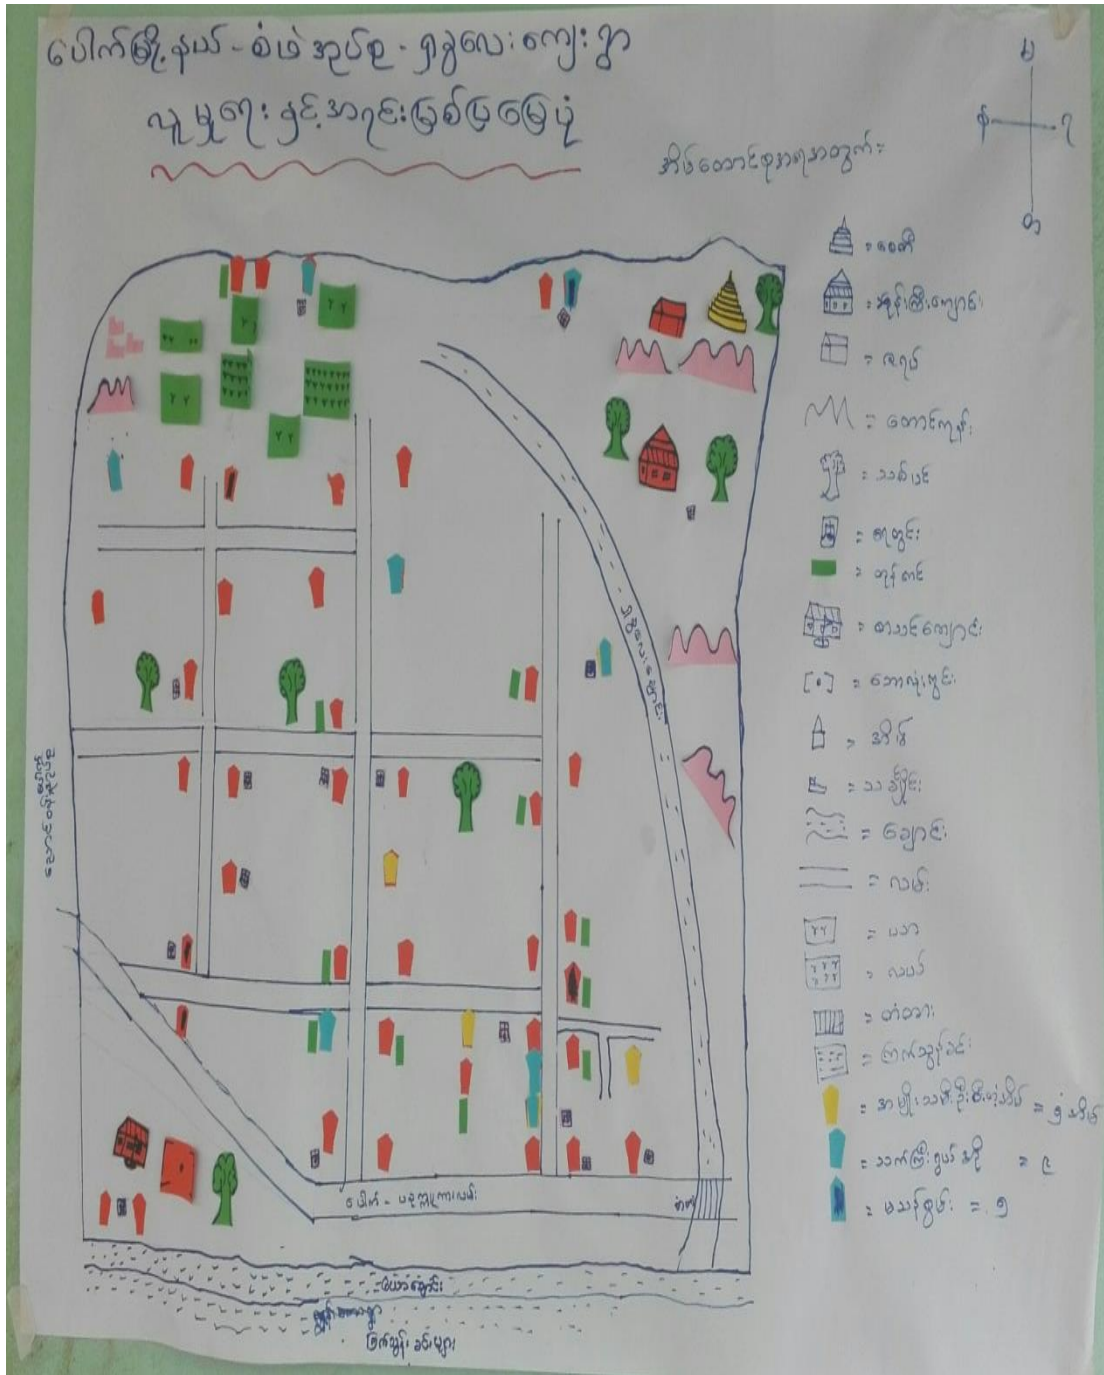 ပေါက်မြို့နယ် - စံဖဲအုပ်စု - ရှခွလေးကျေးရွာ
လူမှုရေးနှင့်အရင်းမြစ်ပြမြေပုံ
မ
န
ရ
တ
အိမ်ထောင်စုအရအတွက်း
= စေတီ
= ဘုန်းကြီးကျောင်း
= ဇရပ်
= တောင်ကုန်း
= သစ်ပင်
= ရေတွင်း
= တုန်ကင်
= စာသင်ကျောင်း
= ဘောလုံးကွင်း
= အိမ်
= သချိုင်း
= ချောင်း
= လမ်း
= ယာ
= လယ်
= တံတား
= ကြက်သွန်ခင်း
= အမျိုးသမီးဦးစီးတဲ့အိမ် = ၅ အိမ်
= သက်ကြီးရွယ်အို = ၉
= မသန်စွမ်း = ၅
ရှခွလေးချောင်း
ပေါက် - ပခုက္ကူကားလမ်း
တံတား
ယောချောင်း
ကြက်သွန်ခင်းများ